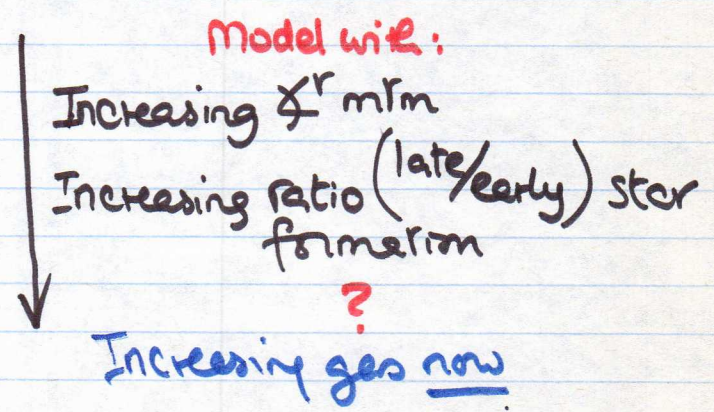 Model with:
Increasing ∡ʳ mᵗm
Increasing ratio (late/early) star
formation
?
Increasing gas now